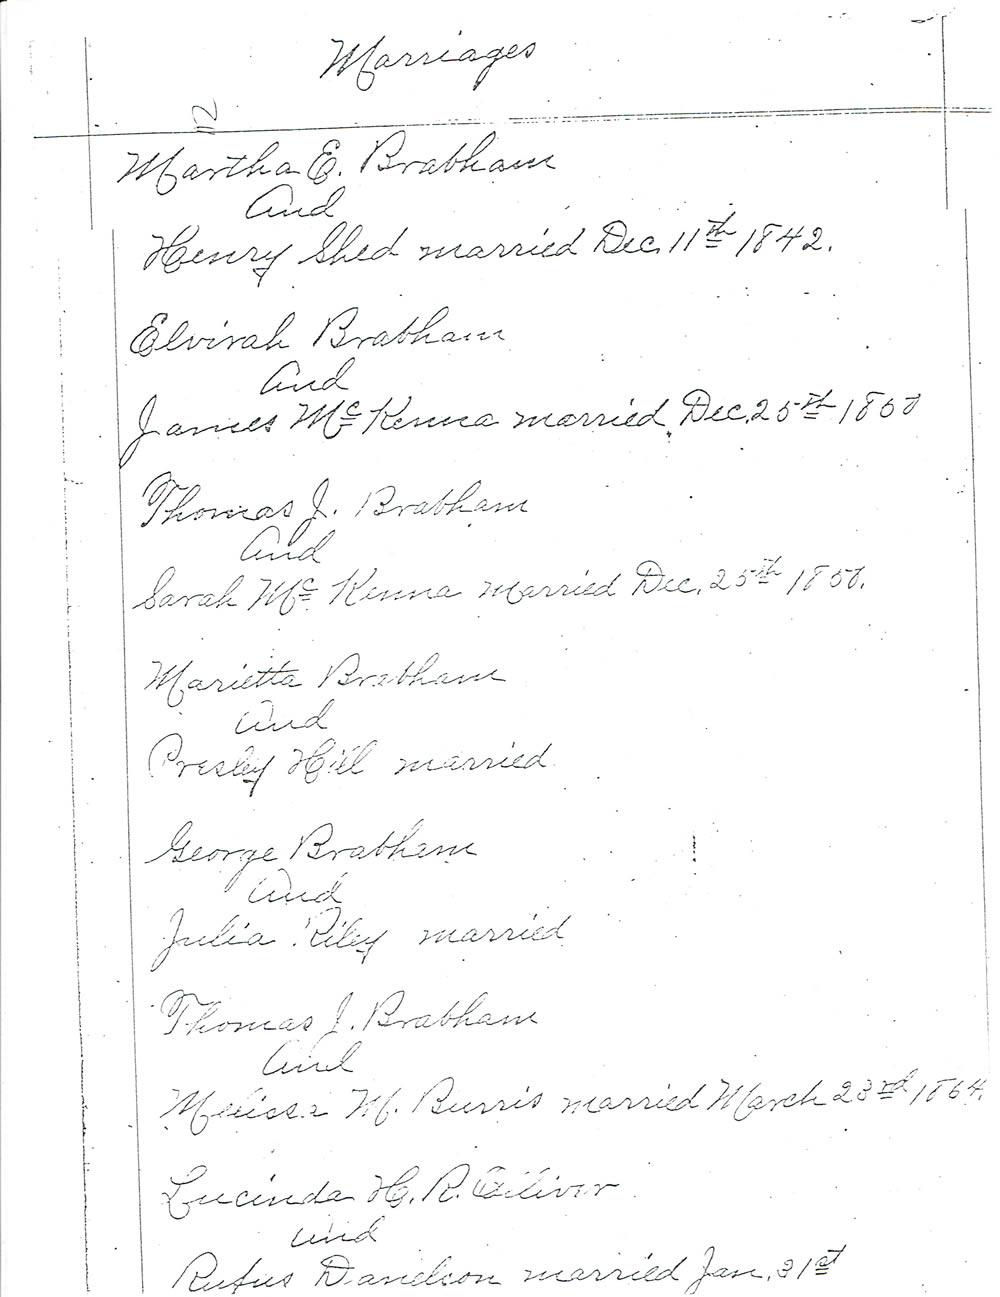 Marriages
Martha E. Brabham
And
Henry Shed married Dec. 11th 1842.
Elvirah Brabham
And
James Mc Kenna married Dec. 25th 1850
Thomas J. Brabham
And
Sarah Mc Kenna married Dec. 25th 1850.
Marietta Brabham
And
Presley Hill married
George Brabham
And
Julia Riley married
Thomas J. Brabham
And
Melissa M. Burris married March 23rd 1864.
Lucinda H. R.
and
Rufus Danelson married Jan. 31st